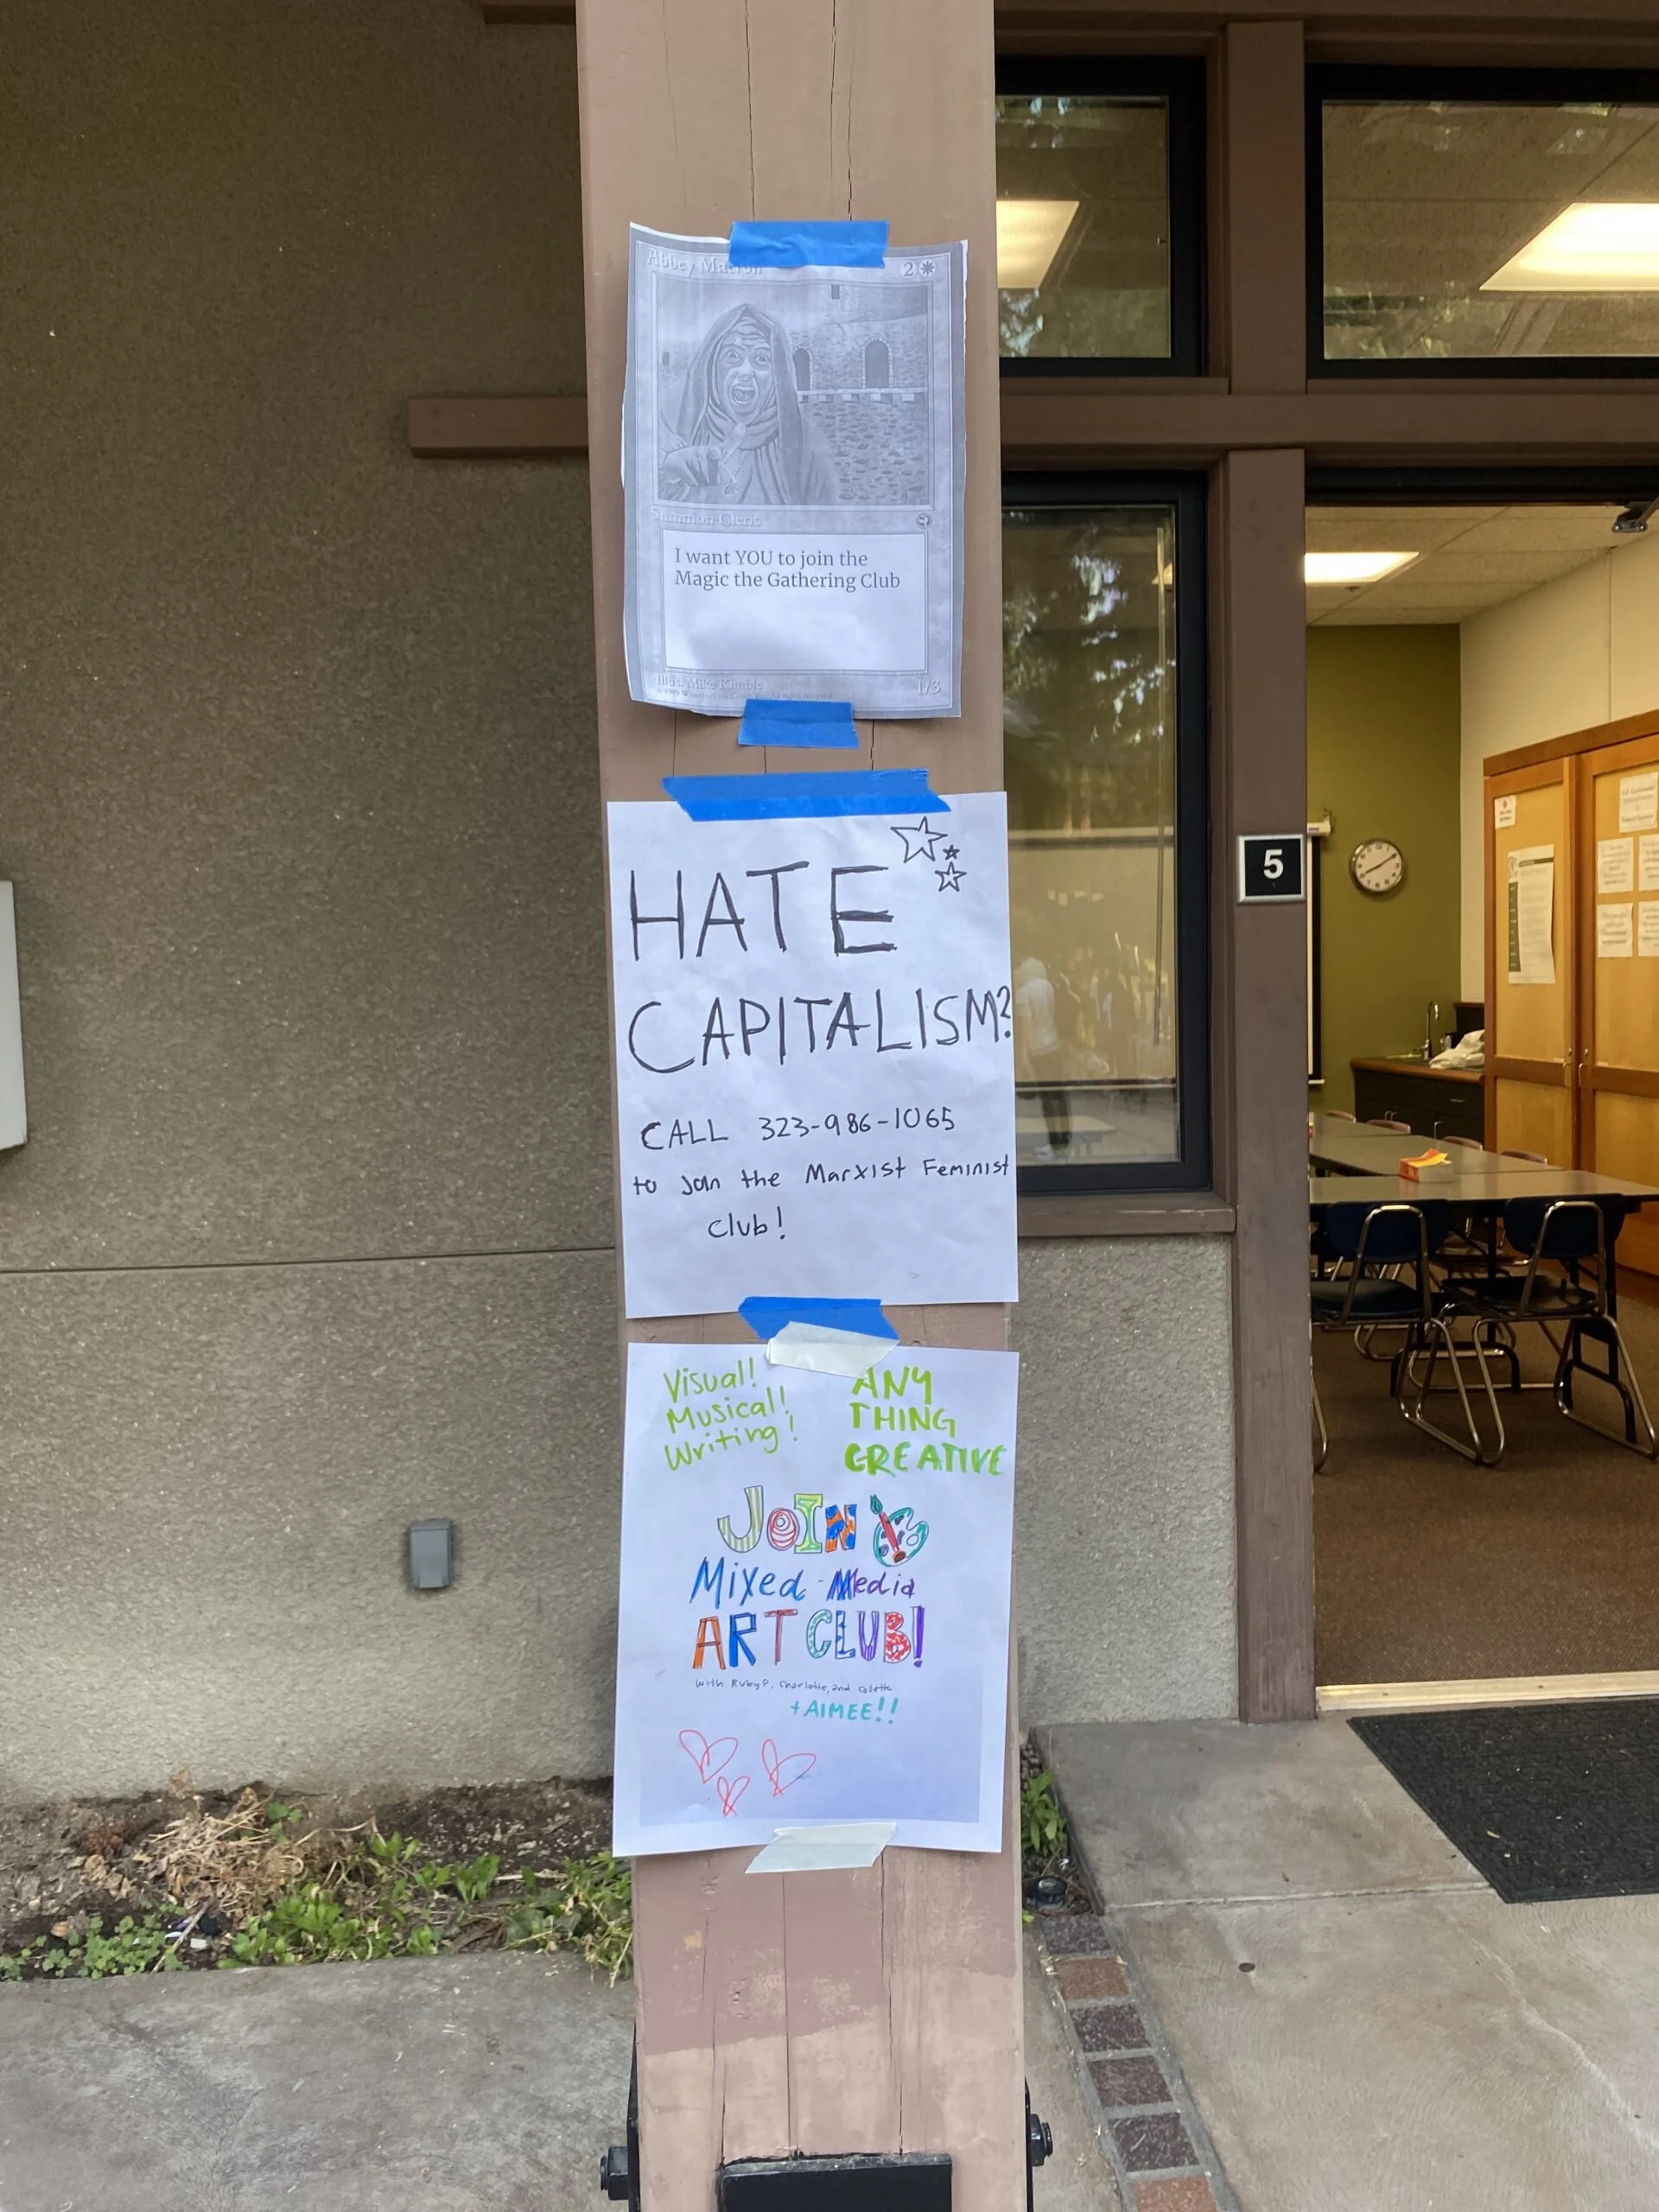 Abbey Matron 2
Summon Cleric
I want YOU to join the
Magic the Gathering Club
Illus. Mike Kimble
1/3
HATE
CAPITALISM?
CALL 323-986-1065
to join the Marxist Feminist
Club!
Visual!
Musical!
Writing!
ANY
THING
CREATIVE
JOIN
Mixed-Media
ART CLUB!
with Ruby P, Charlotte, and Colette
+ AIMEE!!
5